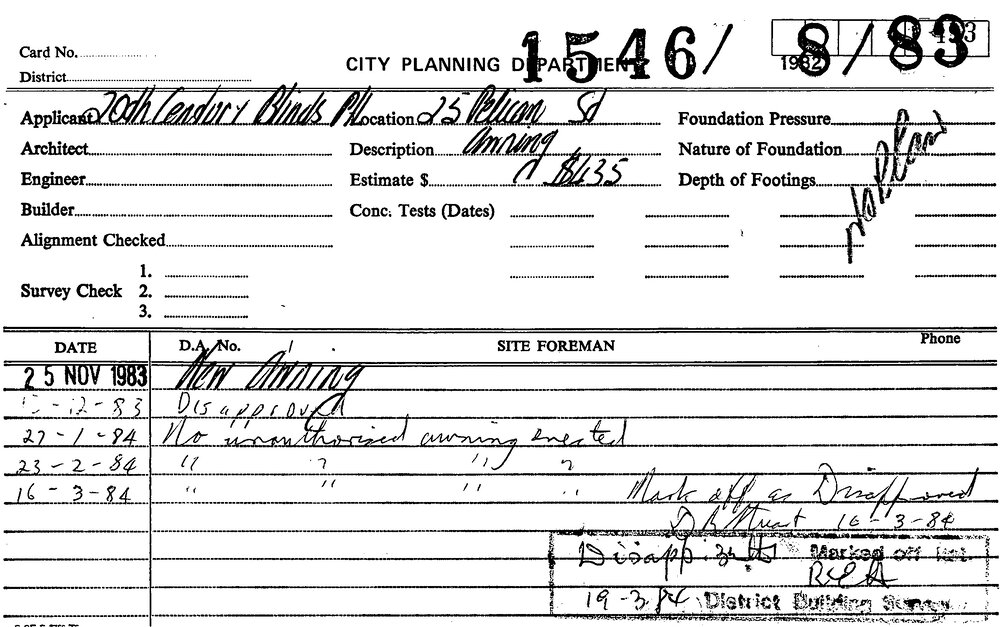 Card No.
1546/8/83
1982
District
CITY PLANNING DEPARTMENT
Applicant 20th Century Blinds P/L Location 25 Pelican St Foundation Pressure
Architect Description Awning Nature of Foundation
Engineer Estimate $ $435 Depth of Footings
No Plans
Builder Conc. Tests (Dates)
Alignment Checked
Survey Check 1.
2.
3.
DATE D.A. No. SITE FOREMAN Phone
25 NOV 1983 New Awning
-12-83 Disapproved
27-1-84 No unauthorised awning erected
23-2-84 " " " "
16-3-84 " " " " Mark off as Disapproved
16-3-84
Disapp Marked off
19-3-84 District Building Survey